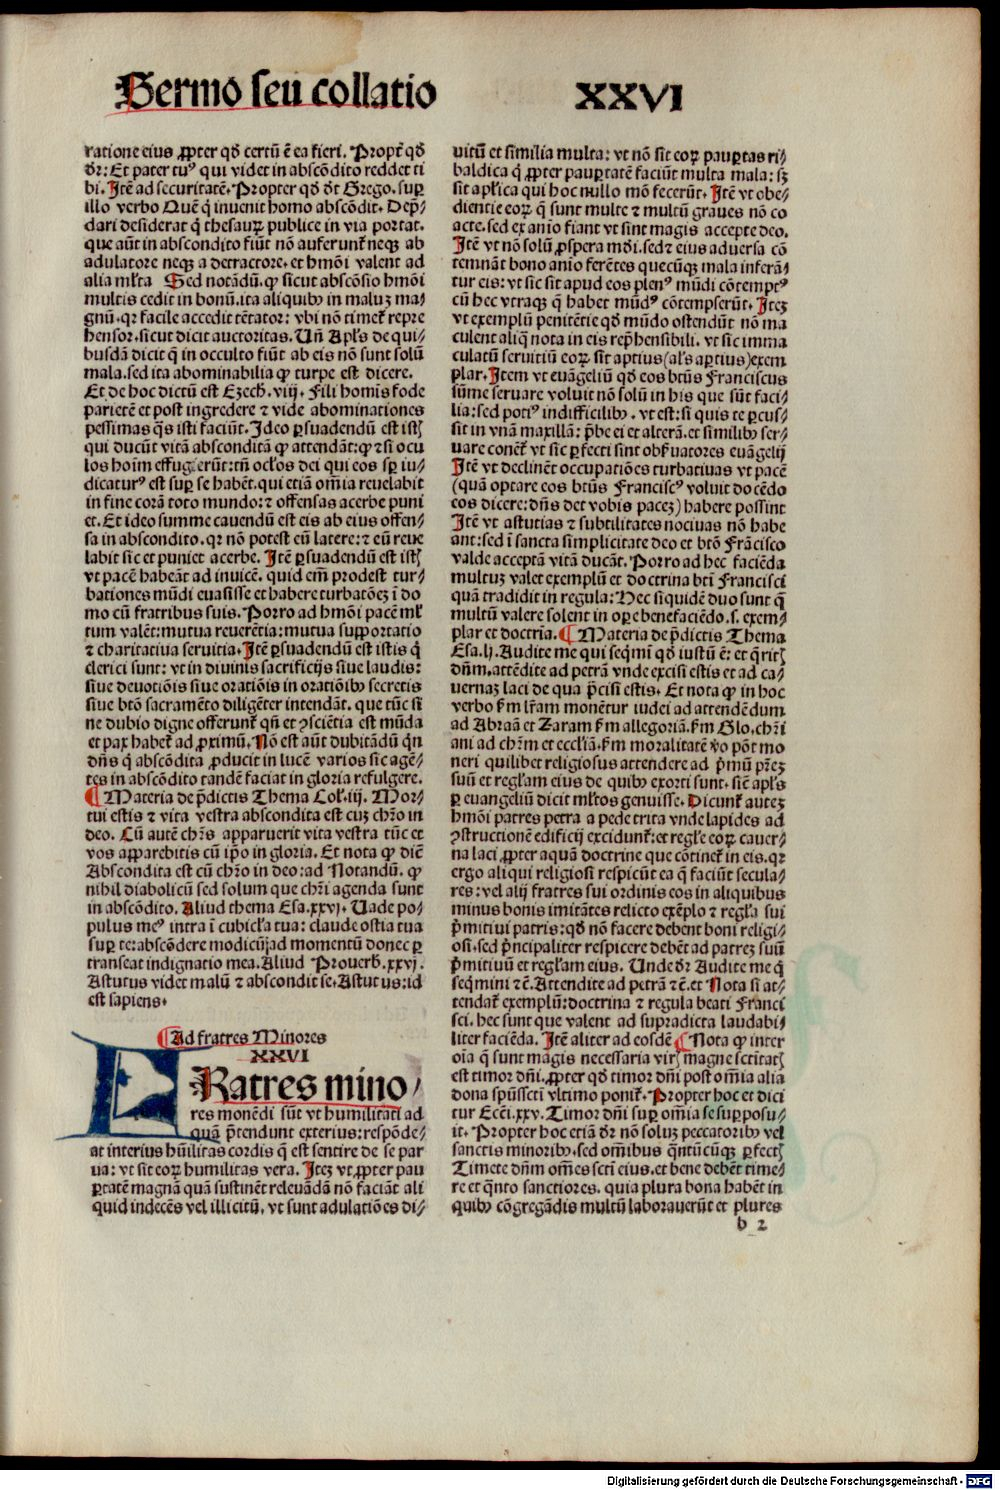 Sermo seu collatio XXVI
ratione eius ꝓpter qđ certū ē ea fieri. Propt̄ qđ
dr̄: Et pater tuꝰ qui videt in abscōdito reddet ti
bi. Itē ad securitatē. Propter qđ dt̄ Grego. suꝑ
illo verbo Quē q̄ invenit homo abscōdit. Dep̄
dari desiderat q̄ thesauꝝ publice in via portat.
que aūt in abscondito fiūt nō auferunt̄ neqꝫ ab
adulatore neqꝫ a detractore. et hmōi valent ad
alia ml̄ta Sed notādū. ꝙ sicut abscōsio hmōi
multis cedit in bonū. ita aliquibꝰ in maluꝫ ma⸗
gnū. qꝛ facile accedit tētator: vbi nō timet̄ repre
hensor. sicut dicit auctoritas. Un̄ Apl̄s de qui⸗
busdā dicit q̄ in occulto fiūt ab eis nō sunt solū
mala. sed ita abominabilia ꝙ turpe est dicere.
Et de hoc dictū est Ezech. viij. Fili homīs fode
parietē et post ingredere ⁊ vide abominationes
pessimas q̄s isti faciūt. Ideo ꝑsuadendū est istꝭ
qui ducūt vitā absconditā ꝙ attendāt: ꝙ ⁊ si ocu
los hoīm effugerūt: tn̄ ocl̄os dei qui eos sꝑ iu⸗
dicaturꝰ est suꝑ se habēt. qui etiā om̄ia reuelabit
in fine corā toto mundo: ⁊ offensas acerbe puni
et. Et ideo summe cauendū est eis ab eius offen⸗
sa in abscondito. qꝛ nō potest eū latere: ⁊ eū reue
labit sic et puniet acerbe. Itē ꝑsuadendū est istꝭ
vt pacē habeāt ad invicē. quid em̄ prodest tur⸗
bationes mūdi euasisse et habere turbatōeꝫ ī do
mo cū fratribus suis. Porro ad hmōi pacē ml̄
tum valēt: mutua reuerētia: mutua supportatio
⁊ charitatiua seruitia. Itē ꝑsuadendū est istis q̄
clerici sunt: vt in divinis sacrificijs siue laudis:
siue deuotiōis siue oratiōis in oratiōibꝰ secretis
siue btō sacramēto diligēter intendāt. que tūc si
ne dubio digne offerunt̄ qn̄ et ꝯsciētia est mūda
et pax habet̄ ad ꝓximū. Nō est aūt dubitādū qn̄
dn̄s q̄ abscōdita ꝓducit in lucē varios sic agē⸗
tes in abscōdito tandē faciat in gloria refulgere.
¶ Materia de p̄dictis Thema Col̄. iij. Mor⸗
tui estis ⁊ vita vestra abscondita est cuꝫ chr̄o in
deo. Cū autē chr̄s apparuerit vita vestra tūc et
vos apparebitis cū ip̄o in gloria. Et nota ꝙ dic̄
Abscondita est cū chr̄o in deo: ad Notandū. ꝙ
nihil diabolicū sed solum que chr̄i agenda sunt
in abscōdito. Aliud thema Esa. xxvj. Uade po⸗
pulus meꝰ intra ī cubicl̄a tua: claude ostia tua
suꝑ te: abscōdere modicū ad momentū donec ꝑ
transeat indignatio mea. Aliud Prouerb. xxvij.
Astutus videt malū ⁊ abscondit se. Astutus: id
est sapiens.
¶ Ad fratres Minores
XXVI
FRatres mino⸗
res monēdi sūt vt humilitati ad
quā p̄tendunt exterius: respōde⸗
at interius hūilitas cordis q̄ est sentire de se par
ua: vt sit eoꝝ humilitas vera. Iteꝫ vt ꝓpter pau
ꝑtatē magnā quā sustinēt releuādā nō faciāt ali
quid indecēs vel illicitū, vt sunt adulatiōes di⸗
uitū et similia multa: vt nō sit eoꝝ pauꝑtas ri⸗
baldica q̄ ꝓpter pauꝑtatē faciūt multa mala: sꝫ
sit apl̄ica qui hoc nullo mō fecerūt. Itē vt obe⸗
dientie eoꝝ q̄ sunt multe ⁊ multū graues nō co
acte. sed ex aīo fiant vt sint magis accepte deo.
Itē vt nō solū ꝓspera mdi. sed ⁊ eius aduersa cō
temnāt bono anīo ferētes quecūqꝫ mala inferā⸗
tur eis: vt sic sit apud eos plenꝰ mūdi cōtemptꝰ
cū hec vtraqꝫ q̄ habet mūdꝰ cōtempserūt. Iteꝫ
vt exemplū penitētie qđ mūdo ostendūt nō ma
culent aliq̄ nota in eis rep̄hensibili. vt sic imma
culatū seruitiū eoꝝ sit aptius (al̄s aꝑtius) exem
plar. Item vt euāgeliū qđ eos btūs Franciscus
sūme seruare voluit nō solū in his que sūt faci⸗
lia: sed potiꝰ indifficilibꝰ. vt est: si quis te ꝑcus⸗
sit in vnā maxillā: p̄be ei et alterā. et similibꝰ ser⸗
uare conent̄ vt sic ꝑfecti sint obẜuatores euāgelij
Itē vt declinēt occupatiōes turbatiuas vt pacē
(quā optare eos btūs Franciscꝰ voluit docēdo
eos dicere: dn̄s det vobis paceꝫ) habere possint
Itē vt astutias ⁊ subtilitates nociuas nō habe
ant: sed ī sancta simplicitate deo et btō Frācisco
valde acceptā vitā ducāt. Porro ad hec faciēda
multuꝫ valet exemplū et doctrina bti Francisci
quā tradidit in regula: Hec siquidē duo sunt q̄
multū valere solent in oꝑe benefaciēdo. s. exem⸗
plar et doctrīa. ¶ Materia de p̄dictis Thema
Esa. lj. Audite me qui seqͥmī qđ iustū ē: et q̄ritꝭ
dn̄m. attēdite ad petrā vnde excisi estis et ad ca⸗
uernaꝫ laci de qua p̄cisi estis. Et nota ꝙ in hoc
verbo ẜm lr̄am monētur iudei ad attendēdum
ad Abraā et Zaram ẜm allegoriā. ẜm Glo. chr̄i
ani ad chr̄m et eccl̄iā. ẜm moralitatē v̄o pōt mo
neri quilibet religiosus attendere ad p̄mū pr̄eꝫ
suū et regl̄am eius de quibꝰ exorti sunt. sic̄ apl̄s
ꝑ euangeliū dicit ml̄tos genuisse. Dicunt̄ auteꝫ
hmōi patres petra a pede trita vnde lapides ad
ꝯstructionē edificij excidunt̄: et regl̄e eoꝝ cauer⸗
na laci ꝓpter aquā doctrine que cōtinet̄ in eis. qꝛ
ergo aliqui religiosi respiciūt ea q̄ faciūt secula⸗
res: vel alij fratres sui ordinis eos in aliquibus
minus bonis imitātes relicto exēplo ⁊ regl̄a sui
p̄mitiui patris: qđ nō facere debent boni religi⸗
osi. sed p̄ncipaliter respicere debēt ad patreꝫ suū
p̄mitiuū et regl̄am eius. Unde dr̄ Audite me q̄
seqͥmini ⁊c̄. Attendite ad petrā ⁊c̄. et Nota si at⸗
tendat̄ exemplū: doctrina ⁊ regula beati Franci
sci. hec sunt que valent ad supradicta laudabi⸗
liter faciēda. Itē aliter ad eosdē ¶ Nota ꝙ inter
oīa q̄ sunt magis necessaria virꝭ magne sctitatꝭ
est timor dn̄i. ꝓpter qđ timor dn̄i post om̄ia alia
dona spūssctī vltimo ponit̄. Propter hoc et dici
tur Ecci. xxv. Timor dn̄i suꝑ om̄ia se suꝑposu⸗
it. Propter hoc etiā dr̄ nō soluꝫ peccatoribꝰ vel
sanctis minoribꝰ. sed om̄ibus qn̄tūcūqꝫ ꝑfectꝭ
Timete dn̄m om̄es scti eius. et bene debēt time⸗
re et qn̄to sanctiores. quia plura bona habēt in
quibꝰ cōgregādis multū laborauerūt et plures
b 2
Digitalisierung gefördert durch die Deutsche Forschungsgemeinschaft - DFG